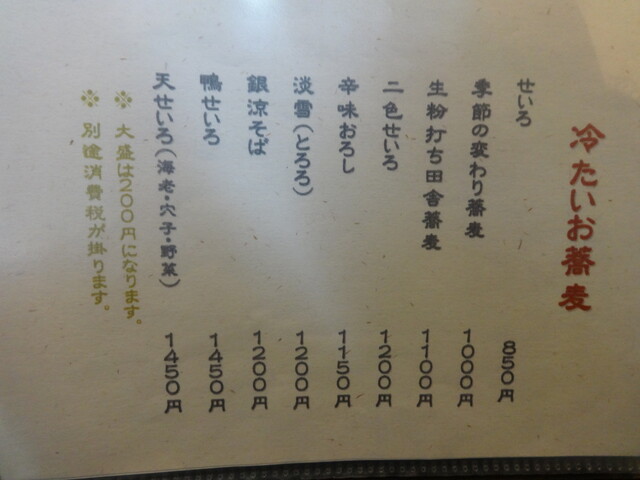 冷たいお蕎麦
せいろ 850円
季節の変わり蕎麦 1000円
生粉打ち田舎蕎麦 1100円
二色せいろ 1200円
辛味おろし 1150円
淡雪(とろろ) 1200円
銀涼そば 1200円
鴨せいろ 1450円
天せいろ(海老・穴子・野菜) 1450円
※ 大盛は200円になります。
※ 別途消費税が掛ります。